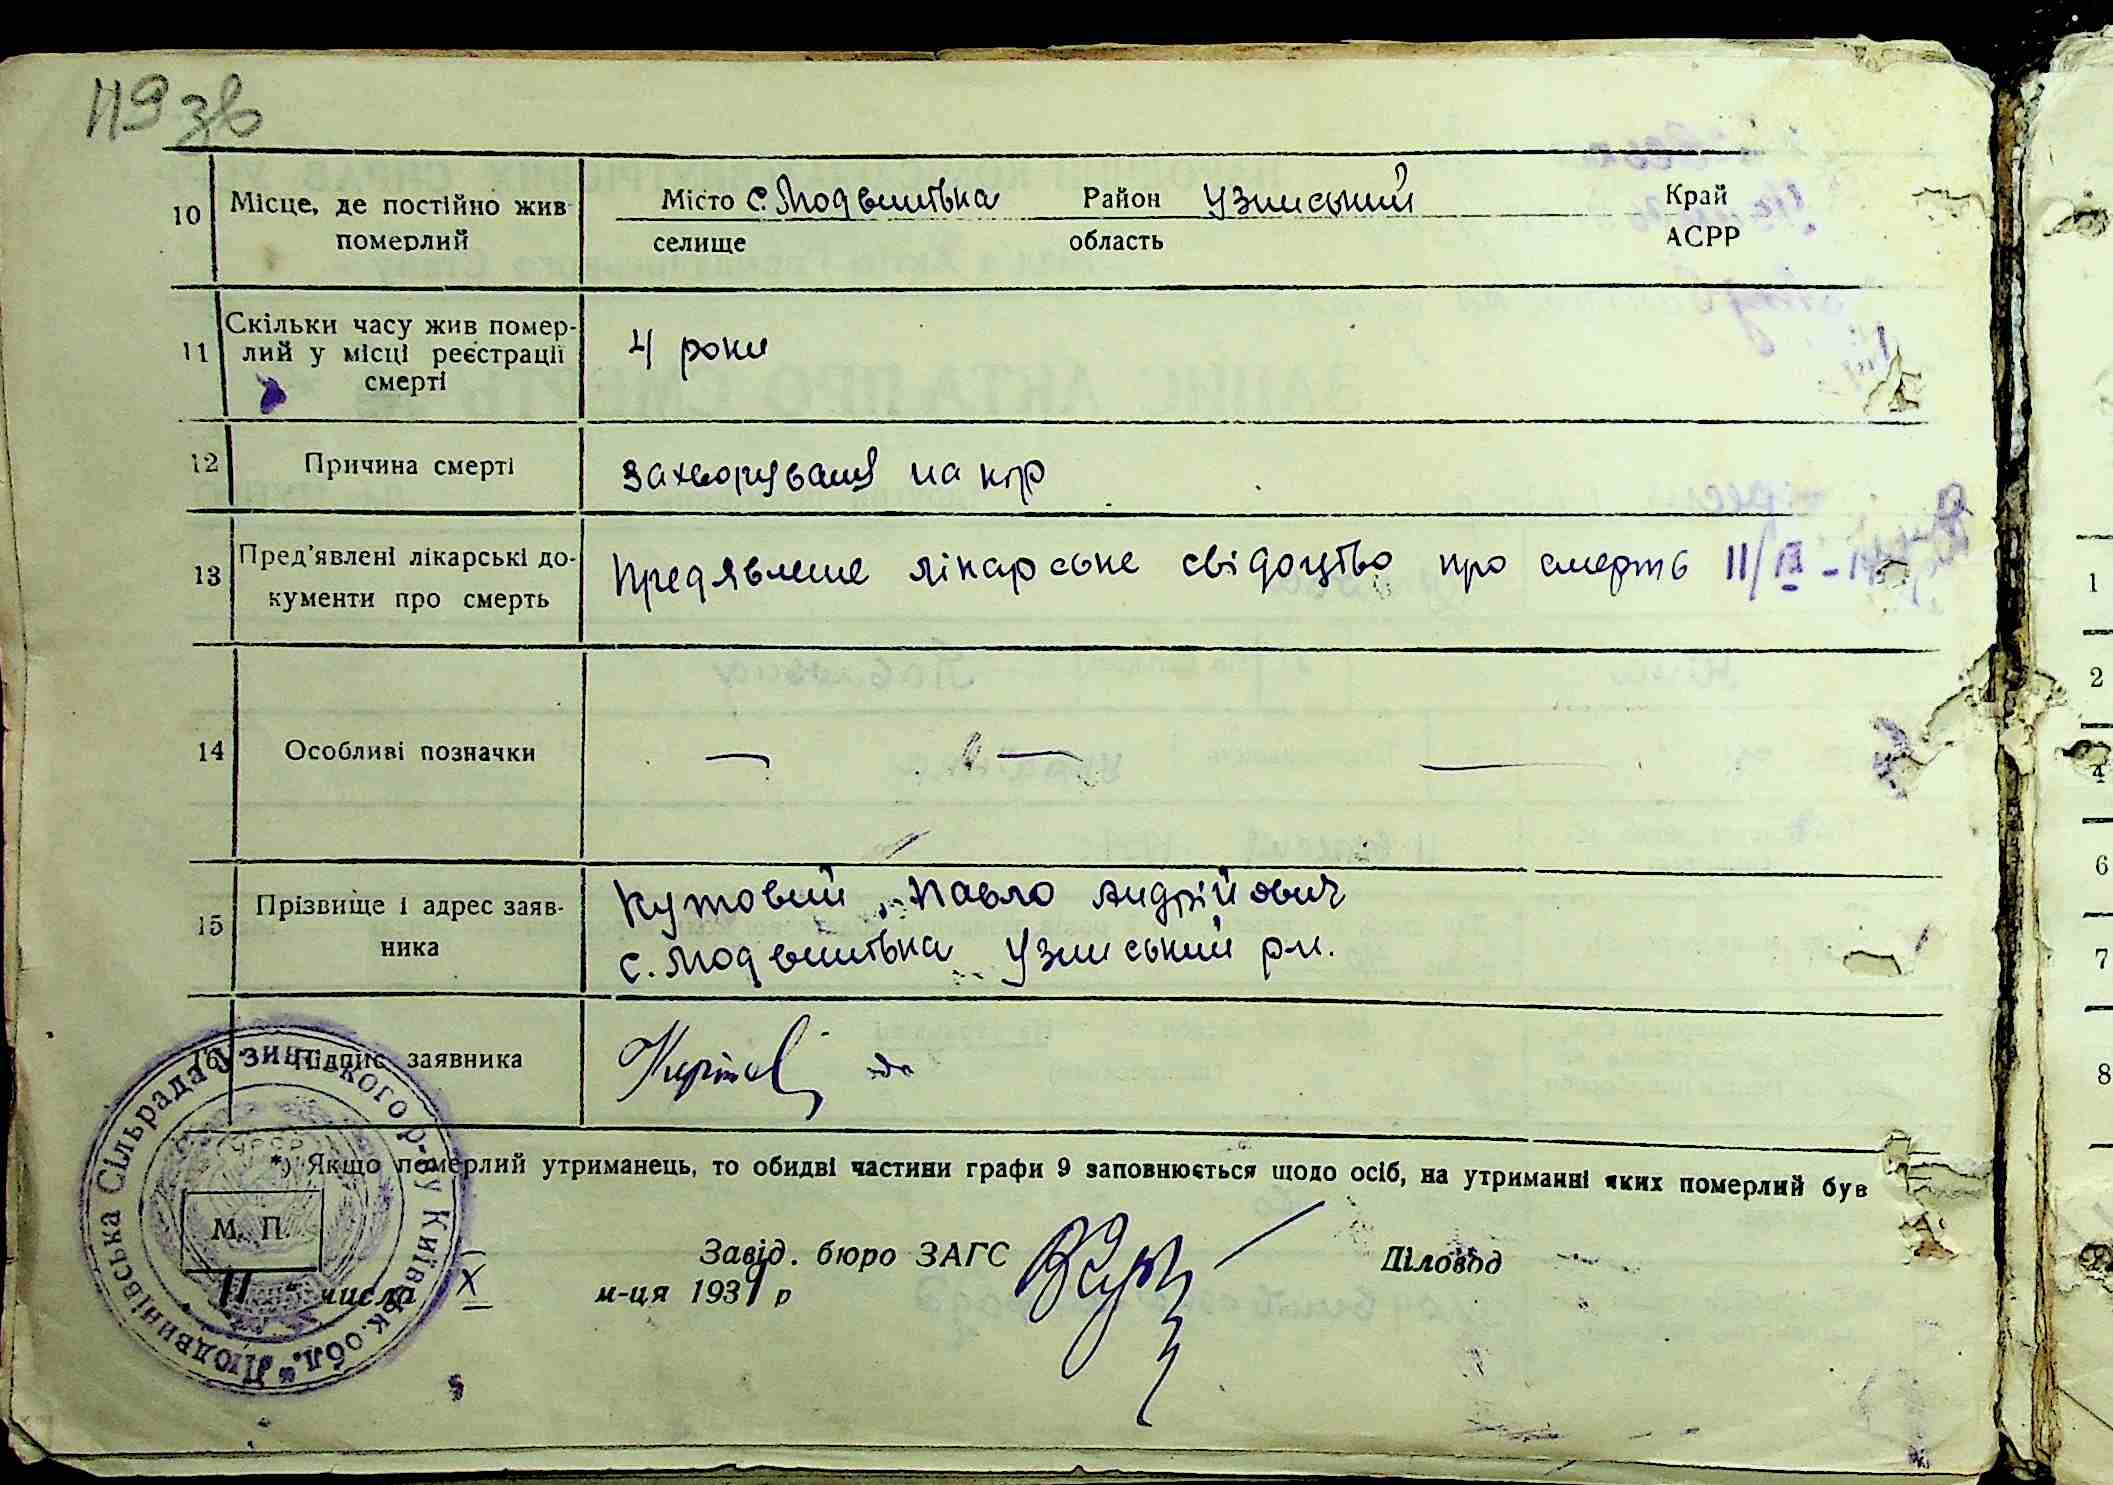 119 зв
10 Місце, де постійно жив померлий
Місто с. Людвинівка Район Узинський Край
селище область АСРР
11 Скільки часу жив помер-
лий у місці реєстрації
смерті
4 роки
12 Причина смерті
Захворування на кір
13 Пред'явлені лікарські до-
кументи про смерть
Предявлене лікарське свідоцтво про смерть 11/IX -
14 Особливі позначки
— — —
15 Прізвище і адрес заяв-
ника
Кутовий Павло Андрійович
с. Людвинівка Узинський р-н.
16 Підпис заявника
*) Якщо померлий утриманець, то обидві частини графи 9 заповнюється щодо осіб, на утриманні яких померлий був
М. П.
Завід. бюро ЗАГС
Діловод
11 числа X м-ця 1939 р
Людвинівська Сільрада Узинського р-ну Київськ. обл.
УРСР
1
2
4
6
7
8